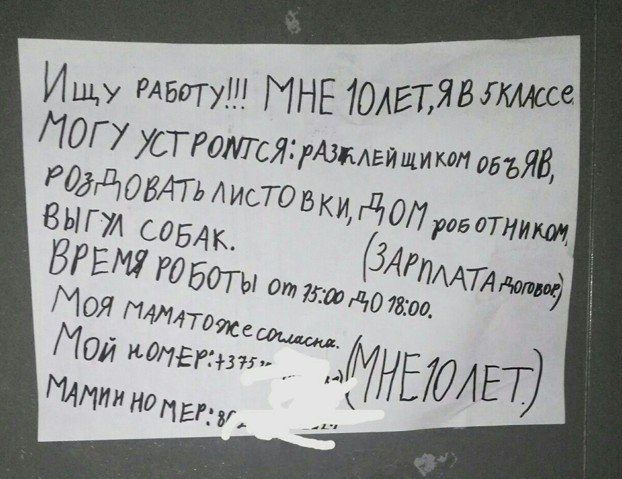 Ищу работу!!! МНЕ 10 ЛЕТ, Я В 5 КЛАССЕ.
МОГУ УСТРОИТСЯ: РАЗКЛЕЙЩИКОМ ОБЪЯВ,
РОЗДОВАТЬ ЛИСТОВКИ, ДОМ РОБОТНИКОМ,
ВЫГУЛ СОБАК. (ЗАРПЛАТА договор.)
ВРЕМЯ РОБОТЫ от 15:00 ДО 18:00.
МОЯ МАМА ТОЖЕ согласна.
МОЙ НОМЕР: +375 (МНЕ 10 ЛЕТ.)
МАМИН НОМЕР: 80